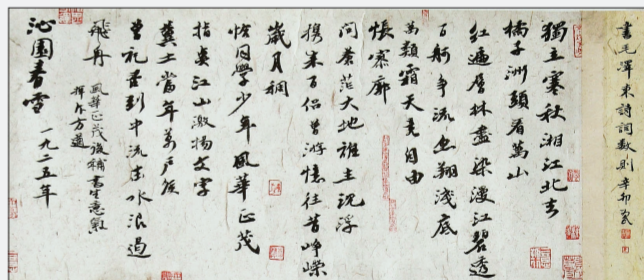 書毛澤東詩詞數則 辛卯
獨立寒秋湘江北去
橘子洲頭看萬山
紅遍層林盡染漫江碧透
百舸爭流鱼翔淺底
萬類霜天竞自由
悵寥廓
問蒼茫大地誰主沉浮
攜來百侶曾游憶往昔崢嶸
歲月稠
恰同學少年風華正茂
指點江山激揚文字
糞土當年萬戶侯
曾記否到中流击水浪遏
飛舟
風華正茂後補書生意氣
揮斥方遒
沁園春雪 一九二五年